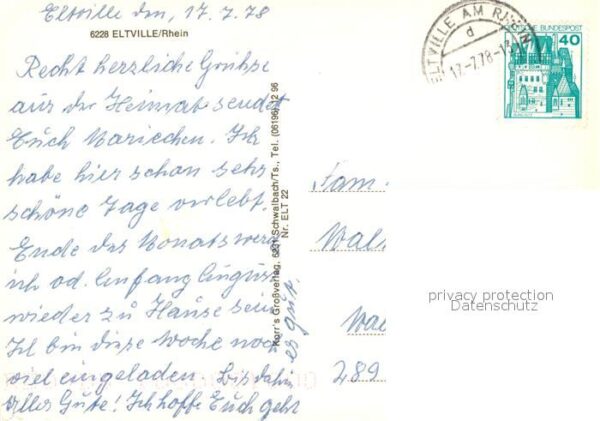 Eltville den, 17.7.78
6228 ELTVILLE/Rhein
Recht herzliche Grühse
aus der Heimat sendet
Euch Mariechen. Ich
habe hier schon sehr
schöne Tage verlebt.
Ende des Monats werde
ich od. Anfang August
wieder zu Hause sein.
Ich bin diese Woche noch
viel eingeladen. Bis dahin
alles Gute! Ich hoffe Euch geht
es gut.
Korr's Großverlag, 6231 Schwalbach/Ts., Tel. (06196) 12 96
Nr. ELT 22
ELTVILLE AM RHEIN
d
17.-7.78-13
DEUTSCHE BUNDESPOST
40
Fam.
Wal
289
privacy protection
Datenschutz